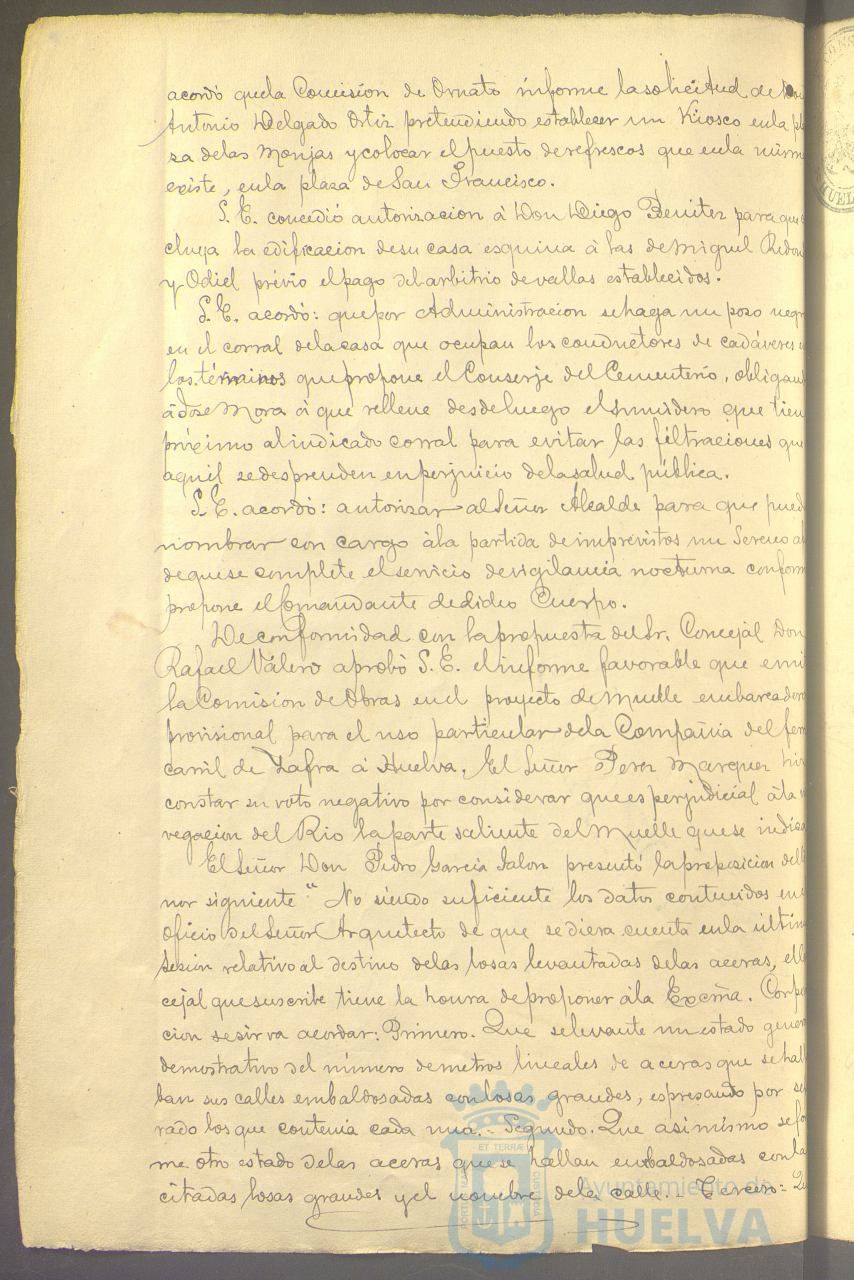 acordó que la Comision de Ornato informe la solicitud de Don
Antonio Delgado Ortiz pretendiendo establecer un Kiosco en la pla
za de las Monjas y colocar el puesto de refrescos que en la misma
existe, en la plaza de San Francisco.
S. E. concedió autorizacion á Don Diego Benitez para que
cluya la edificacion de su casa esquina á las de Miguel Redon
y Odiel prévio el pago del arbitrio de vallas establecidos.
S. E. acordó: que por Administracion se haga un pozo negro
en el corral de la casa que ocupan los conductores de cadáveres
los términos que propone el Conserje del Cementerio, obligan
á José Mora á que rellene desde luego el sumidero que tien
próximo al indicado corral para evitar las filtraciones que
aquil se desprenden en perjuicio de la salud pública.
S. E. acordó: autorizar al Señor Alcalde para que pued
nombrar con cargo á la partida de imprevistos un Sereno a
de que se complete el servicio de vigilancia nocturna conform
propone el Comandante de dicho Cuerpo.
De conformidad con la propuesta del Sr. Concejal Don
Rafael Válero aprobó S. E. el informe favorable que emi
la Comision de Obras en el proyecto de Muelle embarcadero
provisional para el uso particular de la Compañia del ferro
carril de Zafra á Huelva. El Señor Perez Marquez hizo
constar su voto negativo por considerar que es perjudicial á la
vegacion del Rio la parte saliente del Muelle que se indica
El Señor Don Pedro Garcia Jalon presentó la proposicion del
nor siguiente "No siendo suficiente los datos contenidos en
oficio del Señor Arquitecto de que se diera cuenta en la última
sesion relativo al destino de las losas levantadas de las aceras, el
cejal que suscribe tiene la honra de proponer á la Excma. Corpo
cion se sirva acordar: Primero. Que se levante un estado gener
demostrativo del número de metros lineales de aceras que se halla
ban sus calles embaldosadas con losas grandes, espresando por se
rado los que contenia cada una.- Segundo. Que asimismo se for
me otro estado de las aceras que se hallan embaldosadas con la
citadas losas grandes y el nombre de la calle.- Tercero:
ET TERRÆ
Ayuntamiento de
HUELVA